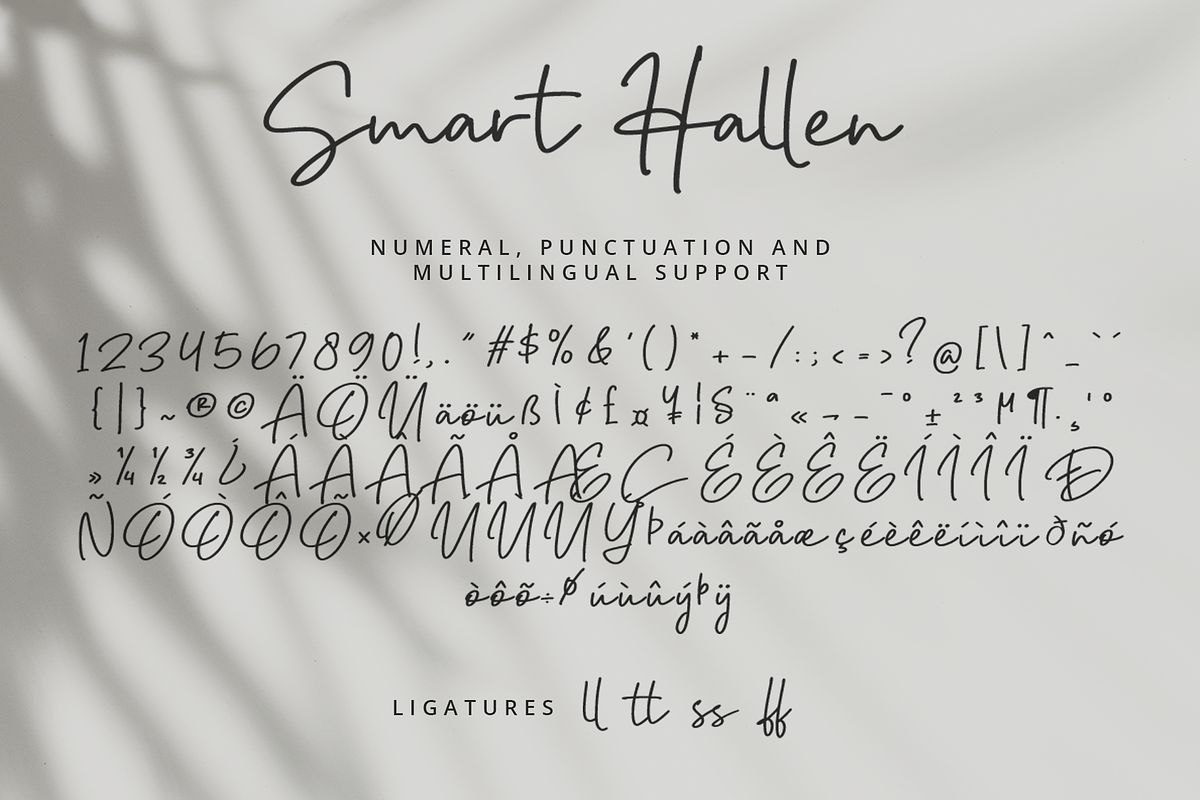 Smart Hallen
NUMERAL, PUNCTUATION AND
MULTILINGUAL SUPPORT
1234567890!,.”#$%&'()*+-/:;<=>?@[\]^_`´
{|}~®©ÄÖÜäöüßÌ¢£¤¥¦§¨ª«¬-¯º±²³µ¶·¸¹º
»¼½¾¿ÁÀÂÃÅÆÇÉÈÊËÍÌÎÏÐ
ÑÓÒÔÕרÚÙÛÝÞáàâãåæçéèêëíìîïðñó
òôõ÷øúùûýþÿ
LIGATURES ll tt ss ff